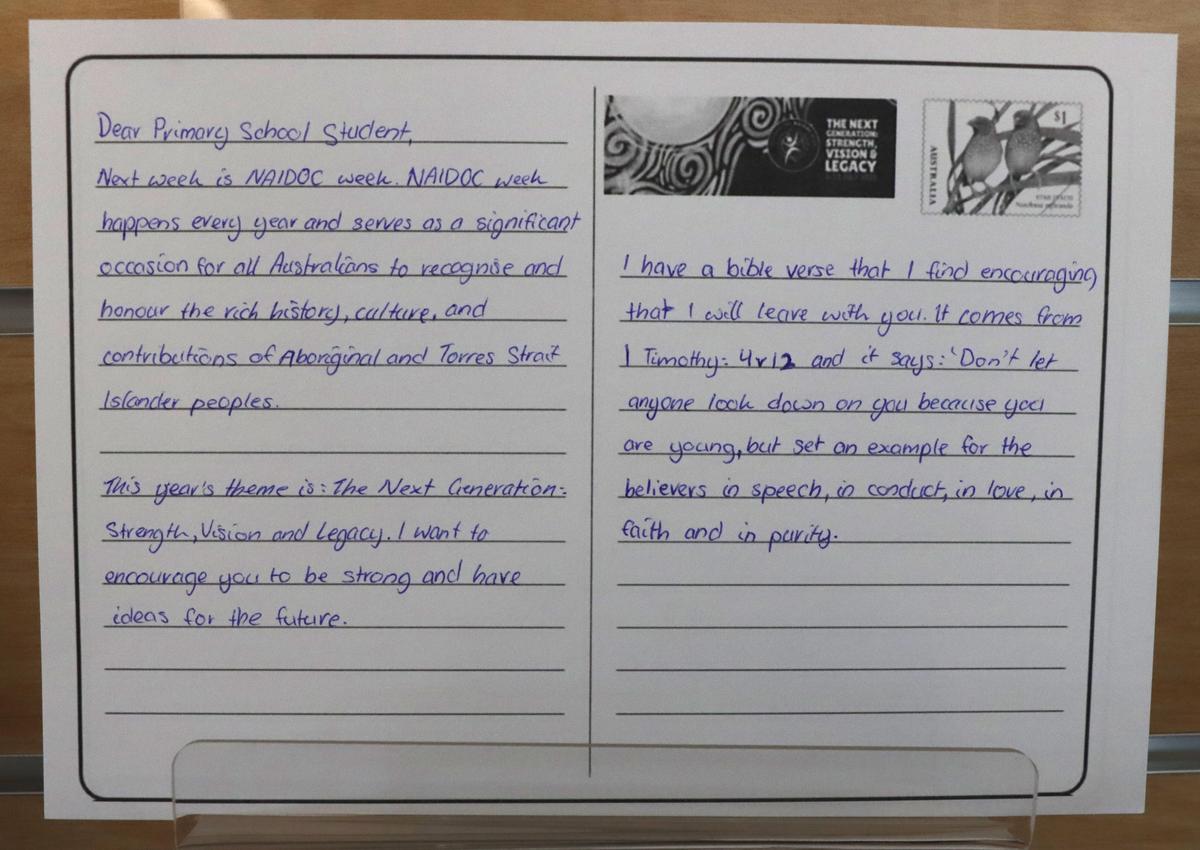 Dear Primary School Student,
Next week is NAIDOC week. NAIDOC week
happens every year and serves as a significant
occasion for all Australians to recognise and
honour the rich history, culture, and
contributions of Aboriginal and Torres Strait
Islander peoples.
This year's theme is: The Next Generation:
Strength, Vision and Legacy. I want to
encourage you to be strong and have
ideas for the future.
THE NEXT
GENERATION:
STRENGTH,
VISION &
LEGACY
$1
AUSTRALIA
STAR FINCH
I have a bible verse that I find encouraging
that I will leave with you. It comes from
1 Timothy: 4v12 and it says: 'Don't let
anyone look down on you because you
are young, but set an example for the
believers in speech, in conduct, in love, in
faith and in purity.